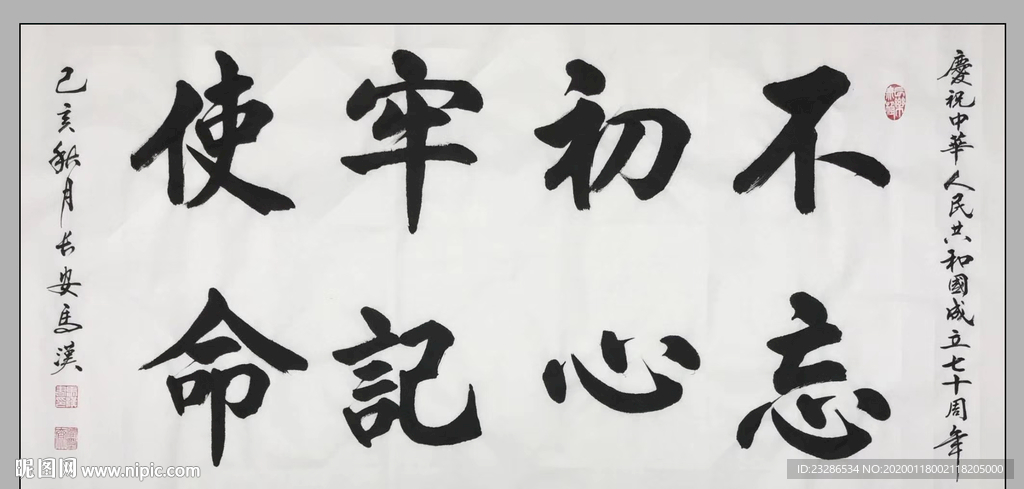 慶祝中華人民共和國成立七十周年
不忘
初心
牢記
使命
己亥秋月长安馬漢
昵图网 www.nipic.com
ID:23286534 NO:20200118002118205000